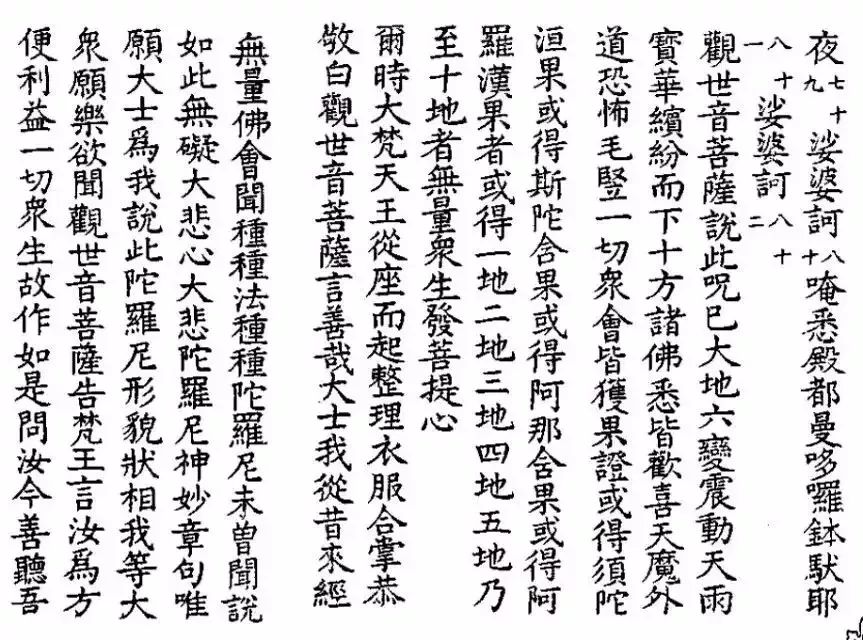 夜七十九娑婆訶八十唵悉殿都曼哆囉鉢馱耶
八十一娑婆訶八十二
觀世音菩薩說此呪已大地六變震動天雨
寶華繽紛而下十方諸佛悉皆歡喜天魔外
道恐怖毛竪一切眾會皆獲果證或得須陀
洹果或得斯陀含果或得阿那含果或得阿
羅漢果者或得一地二地三地四地五地乃
至十地者無量眾生發菩提心
爾時大梵天王從座而起整理衣服合掌恭
敬白觀世音菩薩言善哉大士我從昔來經
無量佛會聞種種法種種陀羅尼未曾聞說
如此無礙大悲心大悲陀羅尼神妙章句唯
願大士爲我說此陀羅尼形貌狀相我等大
眾願樂欲聞觀世音菩薩告梵王言汝爲方
便利益一切眾生故作如是問汝今善聽吾